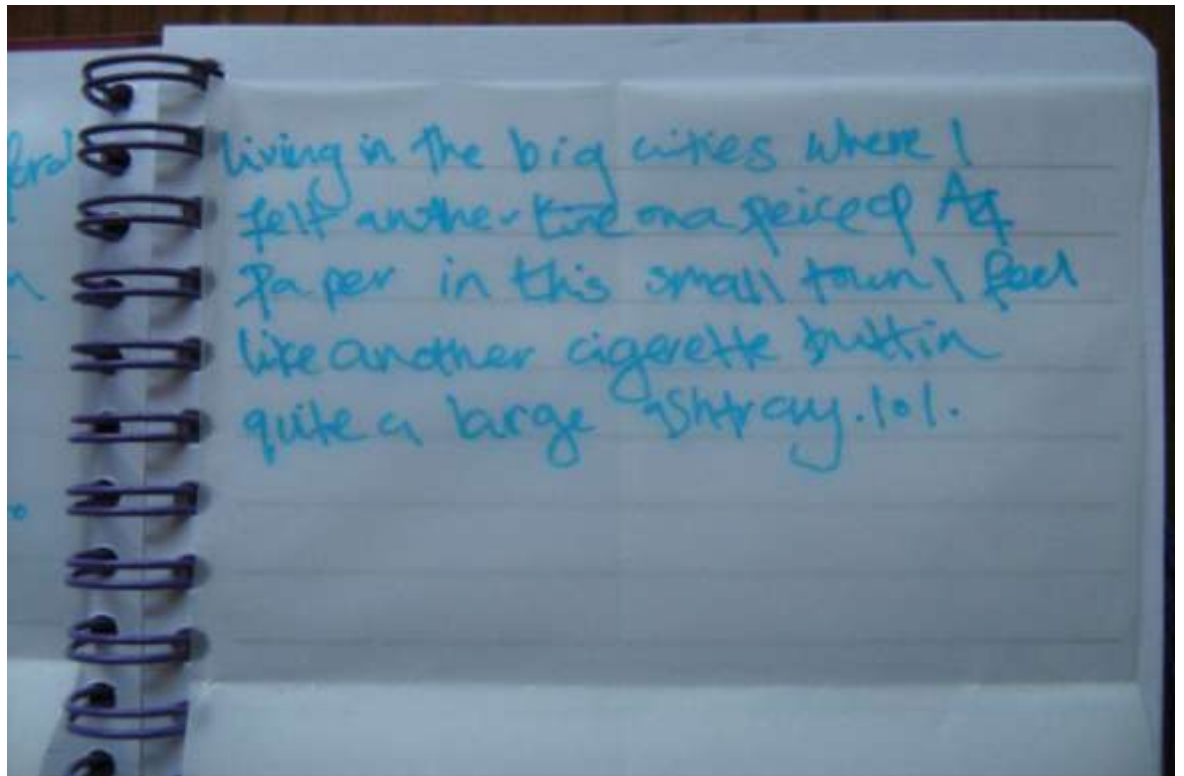 living in the big cities where I
felt another line on a peice of A4
Paper in this small town I feel
like another cigerette butt in
quite a large ashtray.lol.